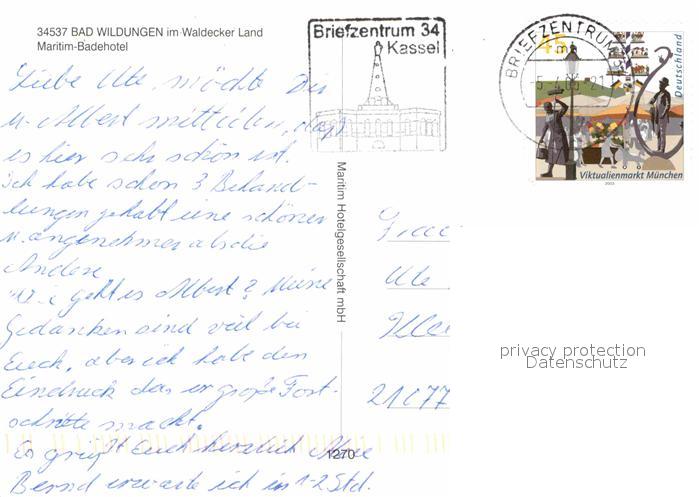 34537 BAD WILDUNGEN im Waldecker Land
Maritim-Badehotel
Liebe Ute, möchte Dir
u. Albert mitteilen, dass
es hier sehr schön ist.
Ich habe schon 3 Behand-
lungen gehabt eine schöner
u. angenehmer als die
Andere
Wie geht es Albert? Meine
Gedanken sind viel bei
Euch, aber ich habe den
Eindruck das er große Fort-
schritte macht.
Es grüßt Euch herzlich
Bernd erwarte ich in 1-2 Std.
Briefzentrum 34
Kassel
BRIEFZENTRUM
45
Deutschland
Viktualienmarkt München
2003
Maritim Hotelgesellschaft mbH
1270
Ute
21077
privacy protection
Datenschutz